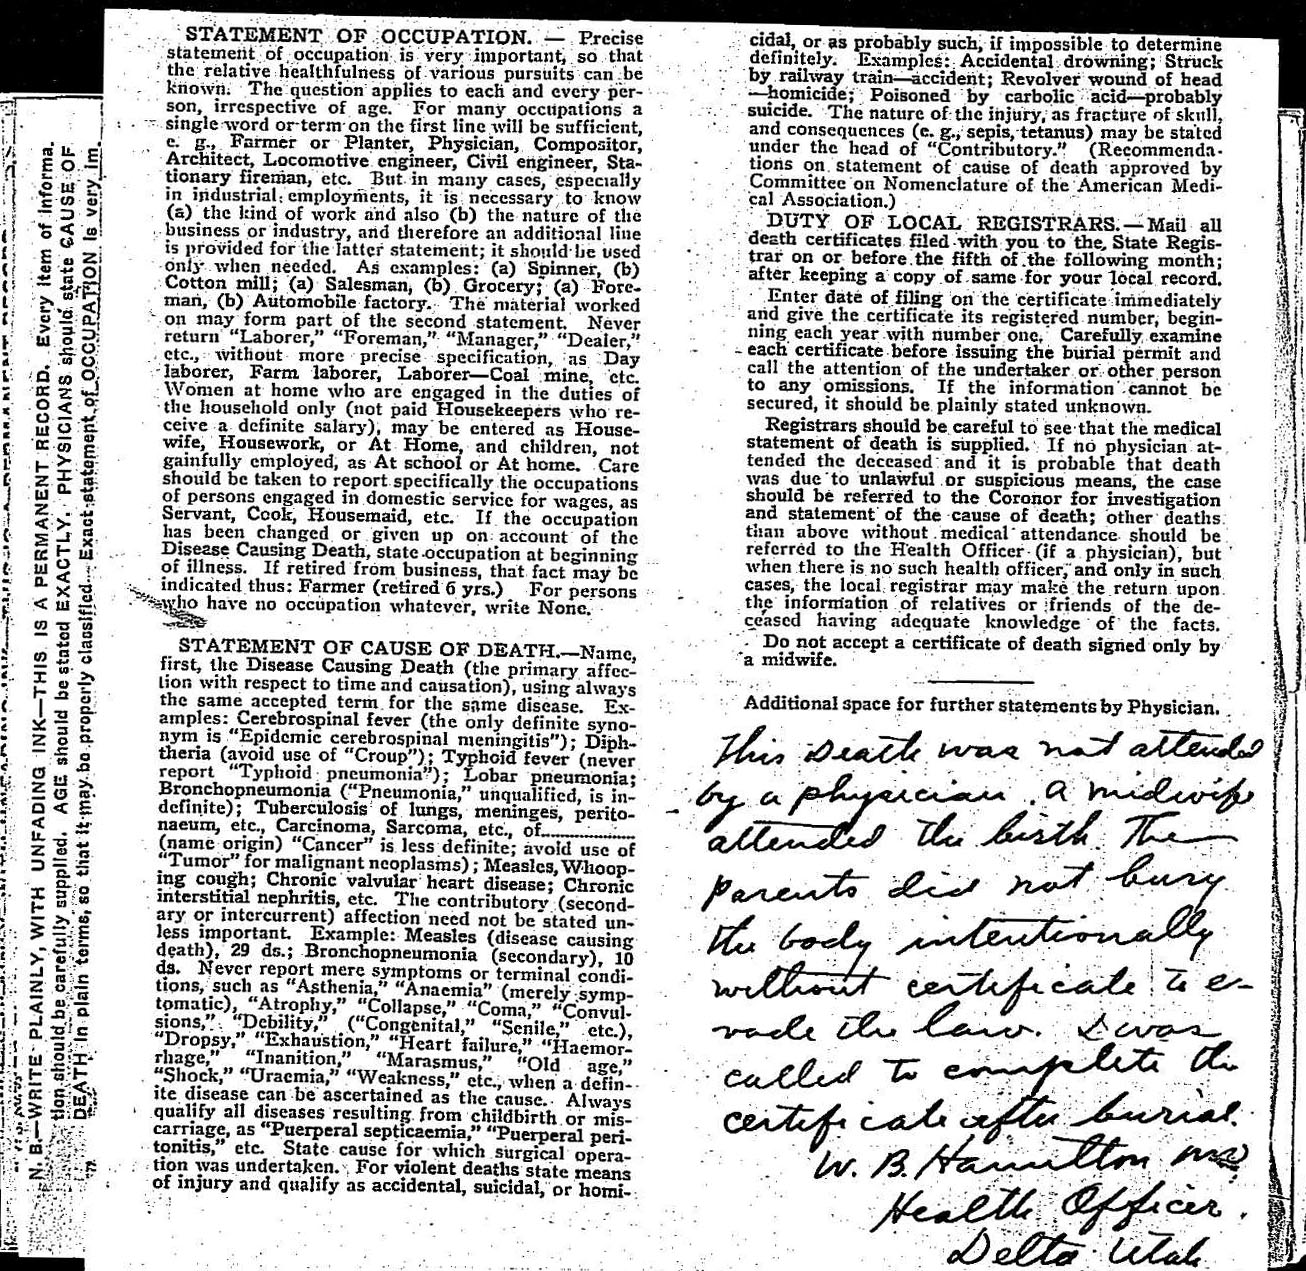 STATEMENT OF OCCUPATION. — Precise
statement of occupation is very important, so that
the relative healthfulness of various pursuits can be
known. The question applies to each and every per-
son, irrespective of age. For many occupations a
single word or term on the first line will be sufficient,
e. g., Farmer or Planter, Physician, Compositor,
Architect, Locomotive engineer, Civil engineer, Sta-
tionary fireman, etc. But in many cases, especially
in industrial employments, it is necessary to know
(a) the kind of work and also (b) the nature of the
business or industry, and therefore an additional line
is provided for the latter statement; it should be used
only when needed. As examples: (a) Spinner, (b)
Cotton mill; (a) Salesman, (b) Grocery; (a) Fore-
man, (b) Automobile factory. The material worked
on may form part of the second statement. Never
return "Laborer," "Foreman," "Manager," "Dealer,"
etc., without more precise specification, as Day
laborer, Farm laborer, Laborer—Coal mine, etc.
Women at home who are engaged in the duties of
the household only (not paid Housekeepers who re-
ceive a definite salary), may be entered as House-
wife, Housework, or At Home, and children, not
gainfully employed, as At school or At home. Care
should be taken to report specifically the occupations
of persons engaged in domestic service for wages, as
Servant, Cook, Housemaid, etc. If the occupation
has been changed or given up on account of the
Disease Causing Death, state occupation at beginning
of illness. If retired from business, that fact may be
indicated thus: Farmer (retired 6 yrs.) For persons
who have no occupation whatever, write None.
STATEMENT OF CAUSE OF DEATH.—Name,
first, the Disease Causing Death (the primary affec-
tion with respect to time and causation), using always
the same accepted term for the same disease. Ex-
amples: Cerebrospinal fever (the only definite syno-
nym is "Epidemic cerebrospinal meningitis"); Diph-
theria (avoid use of "Croup"); Typhoid fever (never
report "Typhoid pneumonia"); Lobar pneumonia;
Bronchopneumonia ("Pneumonia," unqualified, is in-
definite); Tuberculosis of lungs, meninges, perito-
naeum, etc., Carcinoma, Sarcoma, etc., of................
(name origin) "Cancer" is less definite; avoid use of
"Tumor" for malignant neoplasms); Measles, Whoop-
ing cough; Chronic valvular heart disease; Chronic
interstitial nephritis, etc. The contributory (second-
ary or intercurrent) affection need not be stated un-
less important. Example: Measles (disease causing
death), 29 ds.; Bronchopneumonia (secondary), 10
ds. Never report mere symptoms or terminal condi-
tions, such as "Asthenia," "Anaemia" (merely symp-
tomatic), "Atrophy," "Collapse," "Coma," "Convul-
sions," "Debility," ("Congenital," "Senile," etc.),
"Dropsy," "Exhaustion," "Heart failure," "Haemor-
rhage," "Inanition," "Marasmus," "Old age,"
"Shock," "Uraemia," "Weakness," etc., when a defin-
ite disease can be ascertained as the cause. Always
qualify all diseases resulting from childbirth or mis-
carriage, as "Puerperal septicaemia," "Puerperal peri-
tonitis," etc. State cause for which surgical opera-
tion was undertaken. For violent deaths state means
of injury and qualify as accidental, suicidal, or homi-
cidal, or as probably such, if impossible to determine
definitely. Examples: Accidental drowning; Struck
by railway train—accident; Revolver wound of head
—homicide; Poisoned by carbolic acid—probably
suicide. The nature of the injury, as fracture of skull,
and consequences (e. g., sepis, tetanus) may be stated
under the head of "Contributory." (Recommenda-
tions on statement of cause of death approved by
Committee on Nomenclature of the American Medi-
cal Association.)
DUTY OF LOCAL REGISTRARS.—Mail all
death certificates filed with you to the State Regis-
trar on or before the fifth of the following month;
after keeping a copy of same for your local record.
Enter date of filing on the certificate immediately
and give the certificate its registered number, begin-
ning each year with number one. Carefully examine
each certificate before issuing the burial permit and
call the attention of the undertaker or other person
to any omissions. If the information cannot be
secured, it should be plainly stated unknown.
Registrars should be careful to see that the medical
statement of death is supplied. If no physician at-
tended the deceased and it is probable that death
was due to unlawful or suspicious means, the case
should be referred to the Coronor for investigation
and statement of the cause of death; other deaths
than above without medical attendance should be
referred to the Health Officer (if a physician), but
when there is no such health officer, and only in such
cases, the local registrar may make the return upon
the information of relatives or friends of the de-
ceased having adequate knowledge of the facts.
Do not accept a certificate of death signed only by
a midwife.
Additional space for further statements by Physician.
This Death was not attended
by a physician. A midwife
attended the birth. The
parents did not bury
the body intentionally
without certificate to e-
vade the law. I was
called to complete the
certificate after burial.
W. B. Hamilton MD
Health Officer.
Delta Utah
N. B.—WRITE PLAINLY, WITH UNFADING INK—THIS IS A PERMANENT RECORD. Every item of informa-
tion should be carefully supplied. AGE should be stated EXACTLY. PHYSICIANS should state CAUSE OF
DEATH in plain terms, so that it may be properly classified. Exact statement of OCCUPATION is very im-